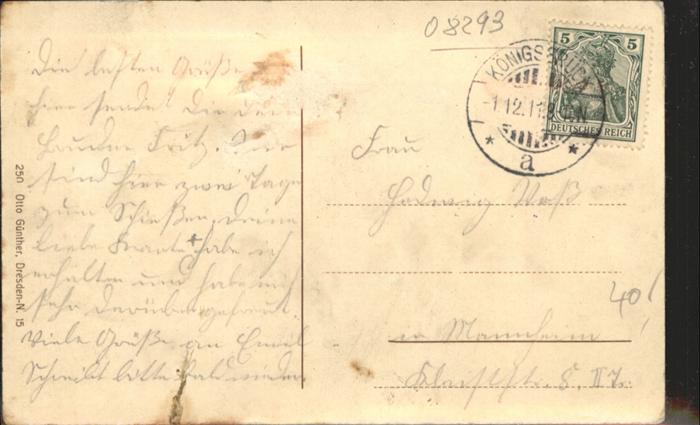 08293
5 5
DEUTSCHES REICH
KÖNIGSBRÜCK
-1.12.11.
* a *
Die besten Grüße
hier sendet Dir Dein
Fritz. Wir
sind hier zwei Tage
zum Schießen, Deine
liebe Karte habe ich
erhalten und habe mich
sehr darüber gefreut.
Viele Grüße an Emil
Schreibt bitte bald wieder.
Frau
Hedwig
in Mannheim
8. II
40!
250 Otto Günther, Dresden-N. 15